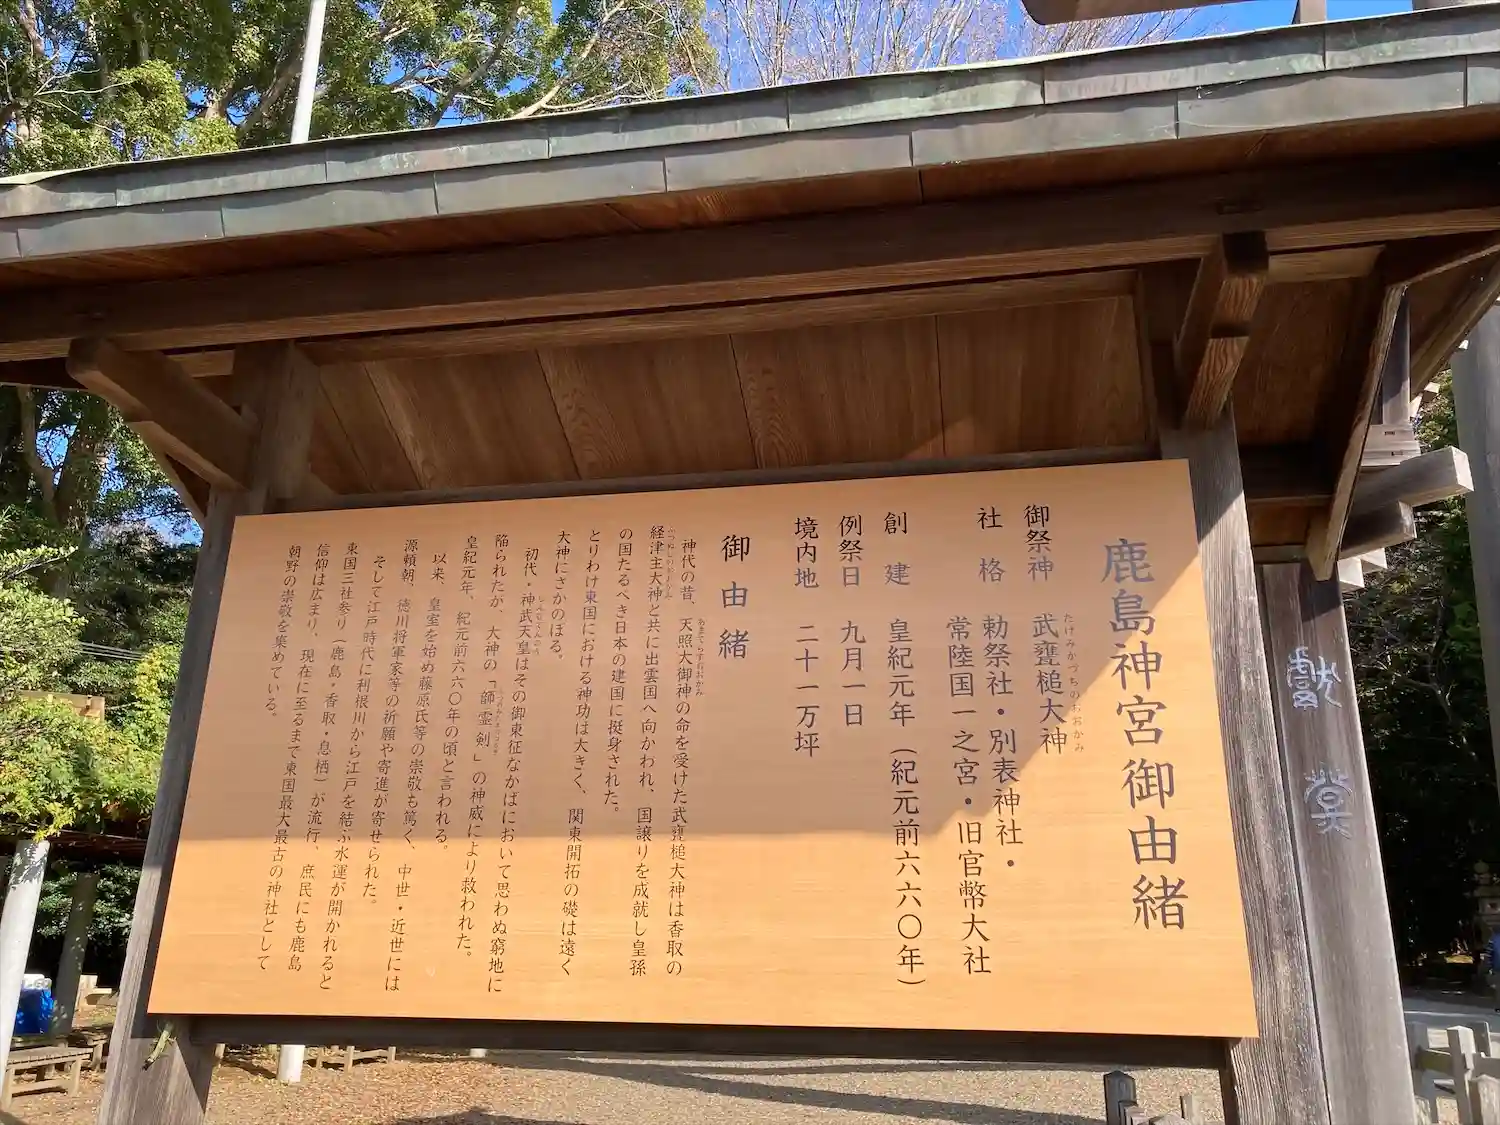 鹿島神宮御由緒
御祭神 武甕槌大神
たけみかづちのおおかみ
社格 勅祭社・別表神社・
常陸国一之宮・旧官幣大社
創建 皇紀元年（紀元前六六〇年）
例祭日 九月一日
境内地 二十一万坪
御由緒
神代の昔、天照大御神の命を受けた武甕槌大神は香取の
あまてらすおおかみ
経津主大神と共に出雲国へ向かわれ、国譲りを成就し皇孫
ふつぬしのおおかみ
の国たるべき日本の建国に挺身された。
とりわけ東国における神功は大きく、関東開拓の礎は遠く
大神にさかのぼる。
初代・神武天皇はその御東征なかばにおいて思わぬ窮地に
じんむてんのう
陥られたが、大神の「韴霊剣」の神威により救われた。
ふつのみたまのつるぎ
皇紀元年、紀元前六六〇年の頃と言われる。
以来、皇室を始め藤原氏等の崇敬も篤く、中世・近世には
源頼朝、徳川将軍家等の祈願や寄進が寄せられた。
そして江戸時代に利根川から江戸を結ぶ水運が開かれると
東国三社参り（鹿島・香取・息栖）が流行、庶民にも鹿島
信仰は広まり、現在に至るまで東国最大最古の神社として
朝野の崇敬を集めている。